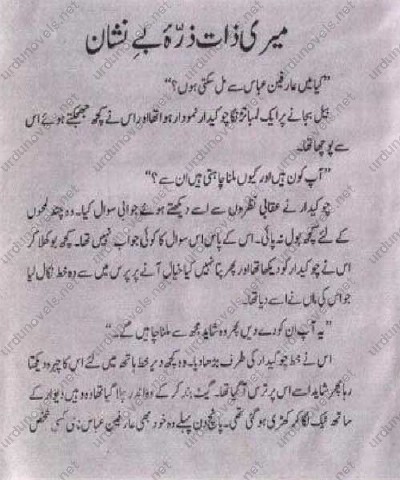 میری ذات ذرّۂ بے نشان
”کیا میں عارفین عباس سے مل سکتی ہوں؟“
بیل بجانے پر ایک لمبا تڑنگا چوکیدار نمودار ہوا تھا اور اس نے کچھ جھجکتے ہوئے اس
سے پوچھا تھا۔
”آپ کون ہیں اور کیوں ملنا چاہتی ہیں ان سے؟“
چوکیدار نے عقابی نظروں سے اسے دیکھتے ہوئے جوابی سوال کیا۔ وہ چند لمحوں
کے لئے کچھ بول نہ پائی۔ اس کے پاس اس سوال کا کوئی جواب نہیں تھا۔ کچھ بوکھلا کر
اس نے چوکیدار کو دیکھا تھا اور پھر پتا نہیں کیا خیال آنے پر پرس میں سے وہ خط نکال لیا
جو اس کی ماں نے اسے دیا تھا۔
”یہ آپ ان کو دے دیں پھر وہ شاید مجھ سے ملنا چاہیں گے۔“
اس نے خط چوکیدار کی طرف بڑھا دیا۔ وہ کچھ دیر خط ہاتھ میں لئے اس کا چہرہ دیکھتا
رہا پھر شاید اسے اس پر ترس آ گیا تھا۔ گیٹ بند کر کے وہ اندر چلا گیا تھا وہ وہیں دیوار کے
ساتھ ٹیک لگا کر کھڑی ہو گئی تھی۔ پانچ دن پہلے وہ خود بھی عارفین عباس نامی کسی شخص
urdunovels.net